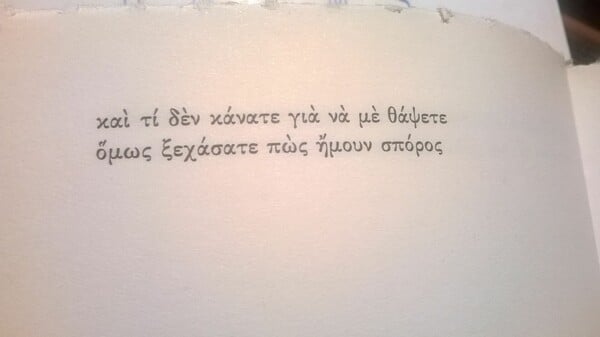 καὶ τί δὲν κάνατε γιὰ νὰ μὲ θάψετε
ὅμως ξεχάσατε πὼς ἤμουν σπόρος